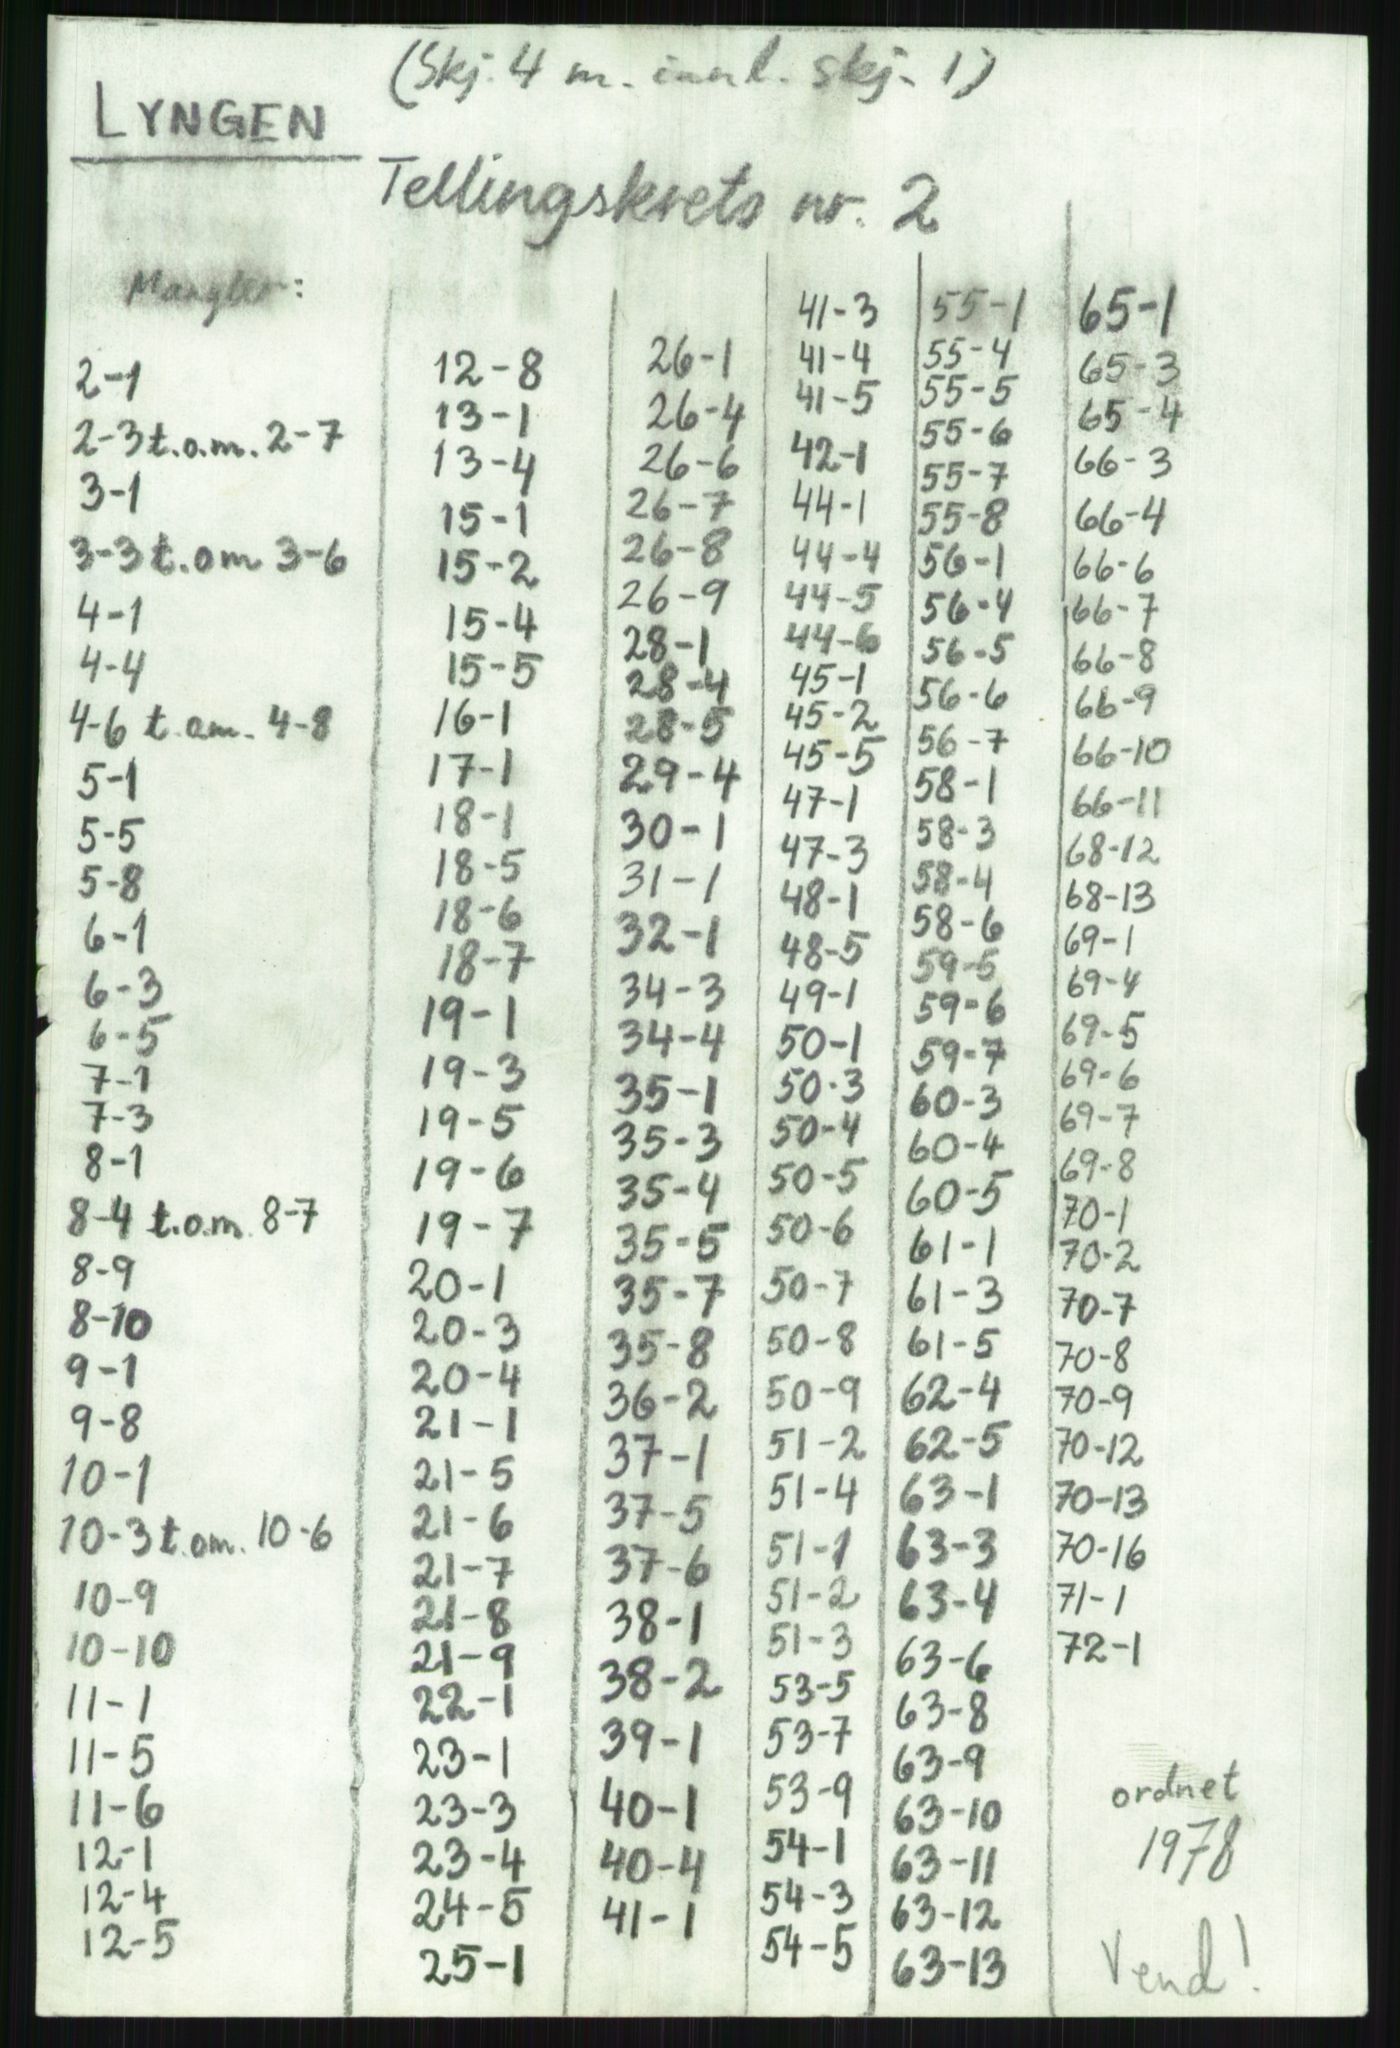 (Skj. 4 m. innl. skj. 1)
LYNGEN
Tellingskrets nr. 2
Mangler:
2-1
2-3 t.o.m. 2-7
3-1
3-3 t.om 3-6
4-1
4-4
4-6 t.om. 4-8
5-1
5-5
5-8
6-1
6-3
6-5
7-1
7-3
8-1
8-4 t.o.m. 8-7
8-9
8-10
9-1
9-8
10-1
10-3 t.om. 10-6
10-9
10-10
11-1
11-5
11-6
12-1
12-4
12-5
12-8
13-1
13-4
15-1
15-2
15-4
15-5
16-1
17-1
18-1
18-5
18-6
18-7
19-1
19-3
19-5
19-6
19-7
20-1
20-3
20-4
21-1
21-5
21-6
21-7
21-8
21-9
22-1
23-1
23-3
23-4
24-5
25-1
26-1
26-4
26-6
26-7
26-8
26-9
28-1
28-4
28-5
29-4
30-1
31-1
32-1
34-3
34-4
35-1
35-3
35-4
35-5
35-7
35-8
36-2
37-1
37-5
37-6
38-1
38-2
39-1
40-1
40-4
41-1
41-3
41-4
41-5
42-1
44-1
44-4
44-5
44-6
45-1
45-2
45-5
47-1
47-3
48-1
48-5
49-1
50-1
50-3
50-4
50-5
50-6
50-7
50-8
50-9
51-2
51-4
51-1
51-2
51-3
53-5
53-7
53-9
54-1
54-3
54-5
55-1
55-4
55-5
55-6
55-7
55-8
56-1
56-4
56-5
56-6
56-7
58-1
58-3
58-4
58-6
59-5
59-6
59-7
60-3
60-4
60-5
61-1
61-3
61-5
62-4
62-5
63-1
63-3
63-4
63-6
63-8
63-9
63-10
63-11
63-12
63-13
65-1
65-3
65-4
66-3
66-4
66-6
66-7
66-8
66-9
66-10
66-11
68-12
68-13
69-1
69-4
69-5
69-6
69-7
69-8
70-1
70-2
70-7
70-8
70-9
70-12
70-13
70-16
71-1
72-1
ordnet
1978
Vend!